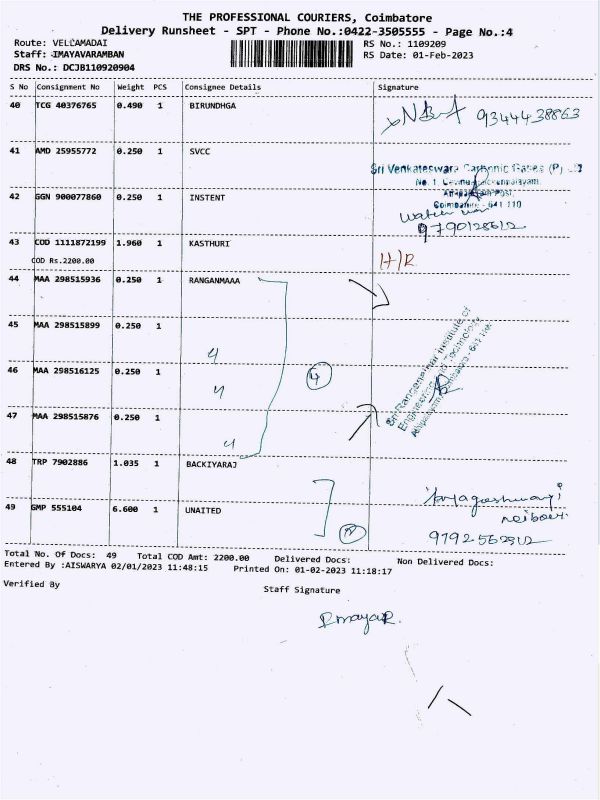 THE PROFESSIONAL COURIERS, Coimbatore
Delivery Runsheet - SPT - Phone No.:0422-3505555 - Page No.:4
Route: VELLAMADAI
RS No.: 1109209
Staff: IMAYAVARAMBAN
RS Date: 01-Feb-2023
DRS No.: DCJB110920904
S No Consignment No Weight PCS Consignee Details Signature
40 TCG 40376765 0.490 1 BIRUNDHGA 9344438863
41 AMD 25955772 0.250 1 SVCC
Sri Venkateswara Carbonic Gases (P) Ltd
No. 1
Coimbatore - 641 110
42 GGN 900077860 0.250 1 INSTENT
9790128612
43 COD 1111872199 1.960 1 KASTHURI H/R
COD Rs.2200.00
44 MAA 298515936 0.250 1 RANGANMAAA
45 MAA 298515899 0.250 1
46 MAA 298516125 0.250 1
4
47 MAA 298515876 0.250 1
Sri Ranganathar Institute of
Engineering and Technology
48 TRP 7902886 1.035 1 BACKIYARAJ
49 GMP 555104 6.600 1 UNAITED
9192562512
Total No. Of Docs: 49 Total COD Amt: 2200.00 Delivered Docs: Non Delivered Docs:
Entered By :AISWARYA 02/01/2023 11:48:15 Printed On: 01-02-2023 11:18:17
Verified By
Staff Signature